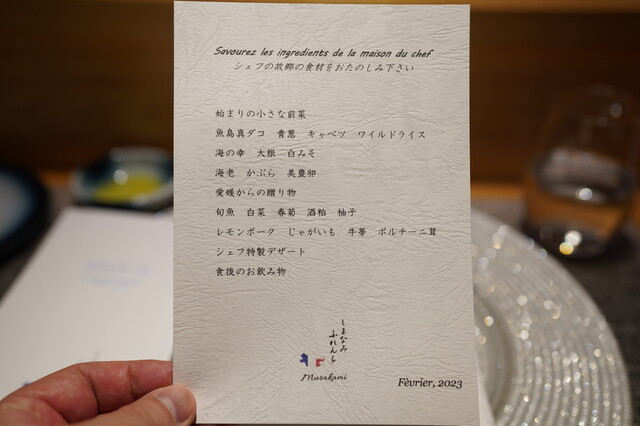 Savourez les ingredients de la maison du chef
シェフの故郷の食材をおたのしみ下さい
始まりの小さな前菜
魚島真ダコ 青葱 キャベツ ワイルドライス
海の幸 大根 白みそ
海老 かぶら 美豊卵
愛媛からの贈り物
旬魚 白菜 春菊 酒粕 柚子
レモンポーク じゃがいも 牛蒡 ポルチーニ茸
シェフ特製デザート
食後のお飲み物
しまなみ
ふれんち
Murakami
Fèvrier, 2023